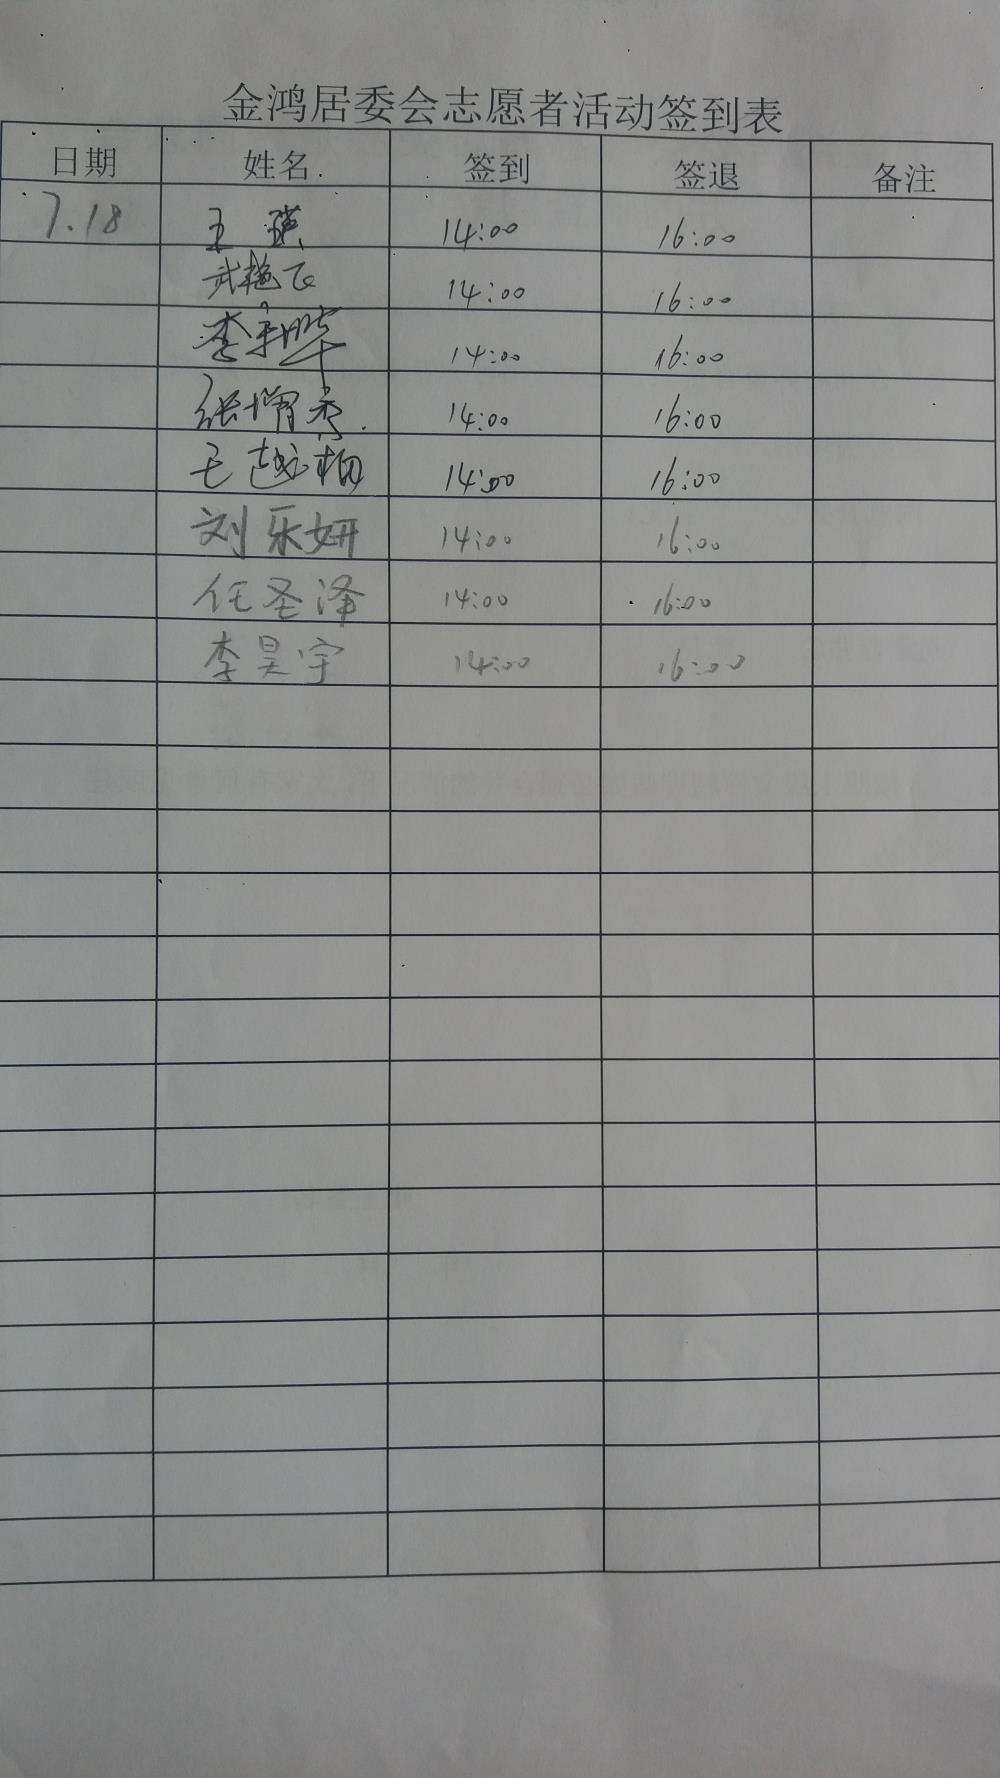 金鸿居委会志愿者活动签到表
日期 姓名 签到 签退 备注
7.18 王瑛 14:00 16:00
武艳飞 14:00 16:00
李 晔 14:00 16:00
张增秀 14:00 16:00
王越 14:00 16:00
刘乐妍 14:00 16:00
任圣泽 14:00 16:00
李昊宇 14:00 16:00